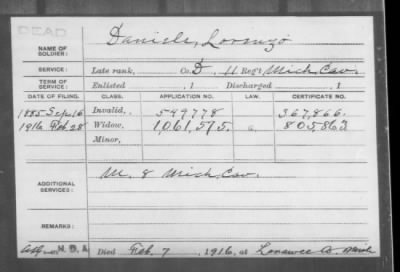 DEAD
NAME OF SOLDIER: Daniels, Lorenzo
SERVICE: Late rank, Co. D, 11 Reg't Mich. Cav.
TERM OF SERVICE: Enlisted , 1 Discharged , 1
DATE OF FILING. CLASS. APPLICATION NO. LAW. CERTIFICATE NO.
1885 Sep. 16 Invalid, 549778 367,866.
1916 Feb. 28 Widow, 1,061,575. 805,863
Minor,
ADDITIONAL SERVICES: M. 8 Mich. Cav.
REMARKS:
Died Feb. 7, 1916, at Lenawee Co. Mich